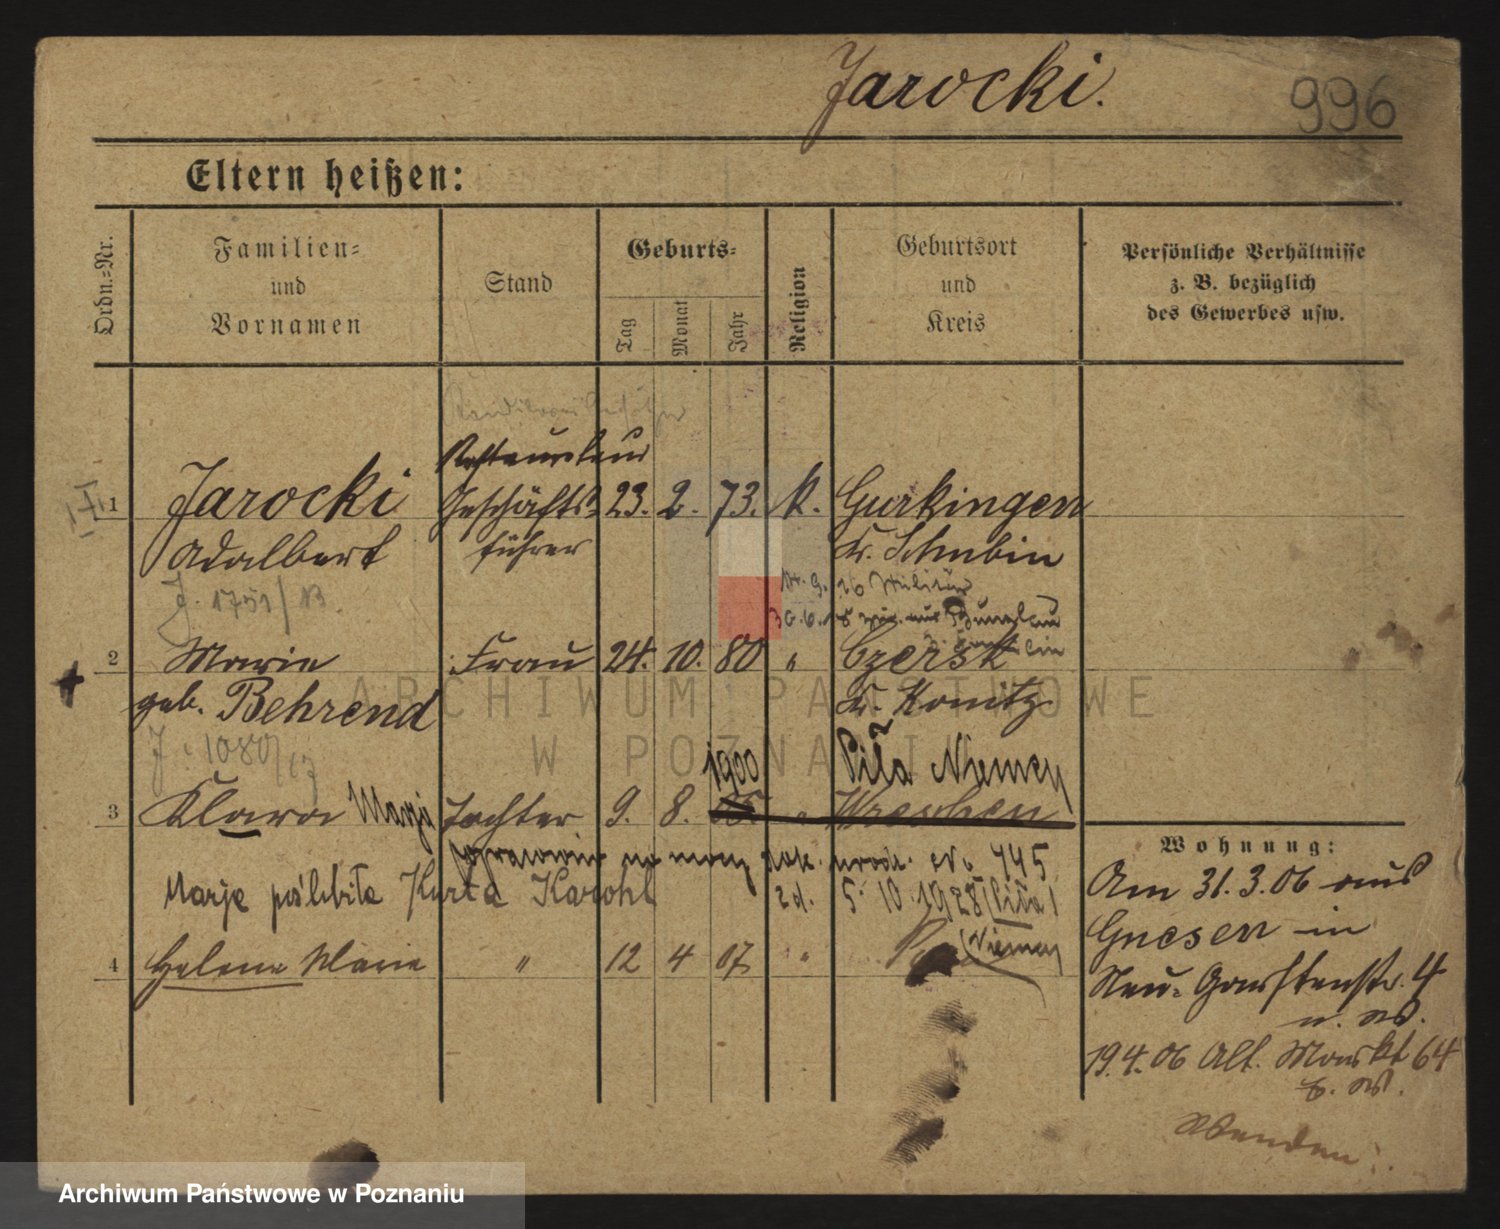 Jarocki.
996
Eltern heißen:
Ordn.-Nr.
Familien-
und
Vornamen
Stand
Geburts-
Tag
Monat
Jahr
Religion
Geburtsort
und
Kreis
Persönliche Verhältnisse
z. B. bezüglich
des Gewerbes usw.
1 Jarocki Geschäfts- 23. 2. 73. k. Gurkingen
Adalbert führer Kr. Schubin
J. 1751/13.
2 Marie Frau 24. 10. 80 " Czersk
geb. Behrend Kr. Konitz
J. 1080/13
1900 Piła Niemcy
3 Klara Marja Tochter 9. 8. " Wreschen
na mocy akt. urodz. No 445
Marja poślubiła Kurta Karohl
z d. 5.10.1928 (Piła)
(Niemcy
4 Helene Marie " 12 4 07 "
Wohnung:
Am 31.3.06 aus
Gnesen in
Neu-Gartenstr. 4
19.4.06 Alt. Markt 64
Wenden!
ARCHIWUM PAŃSTWOWE
W POZNANIU
Archiwum Państwowe w Poznaniu